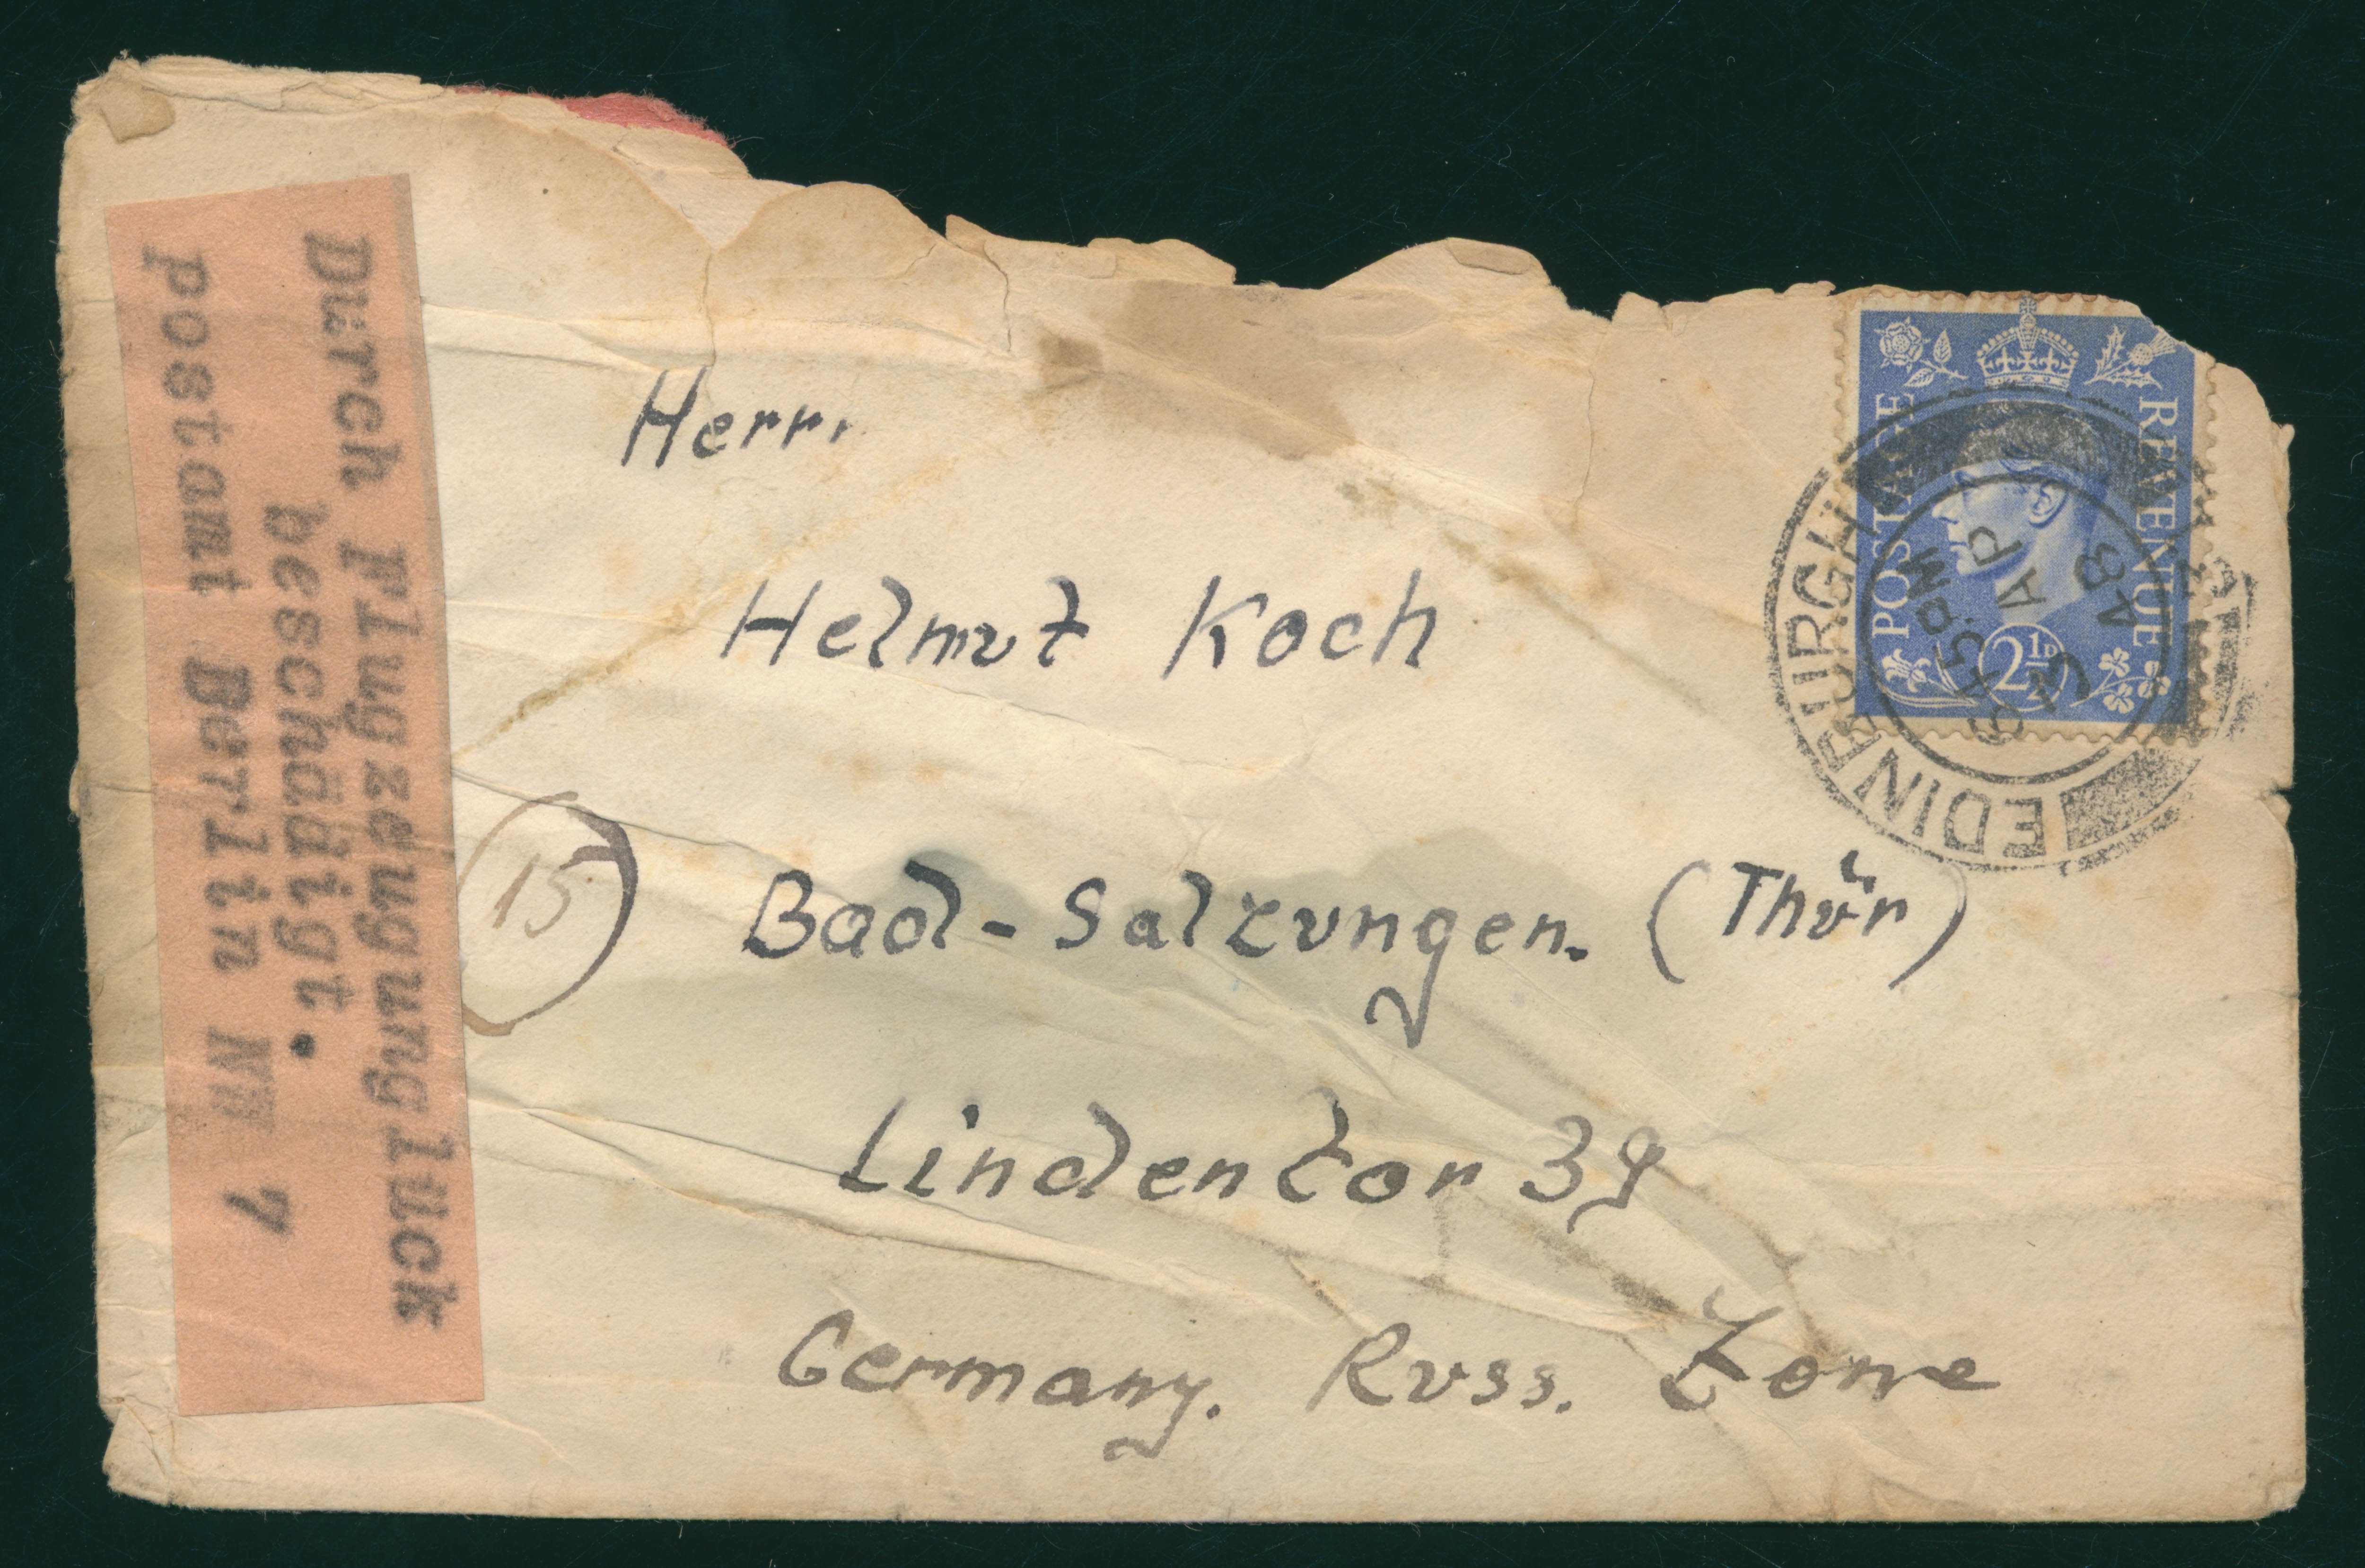 Durch Flugzeugunglück
beschädigt.
Postamt Berlin NW 7
Herrn
Helmut Koch
(15) Bad-Salzungen. (Thür)
Lindentor 39
Germany. Russ. Zone
POSTAGE REVENUE
2½D
EDINBURGH
6 45 PM
AP
48